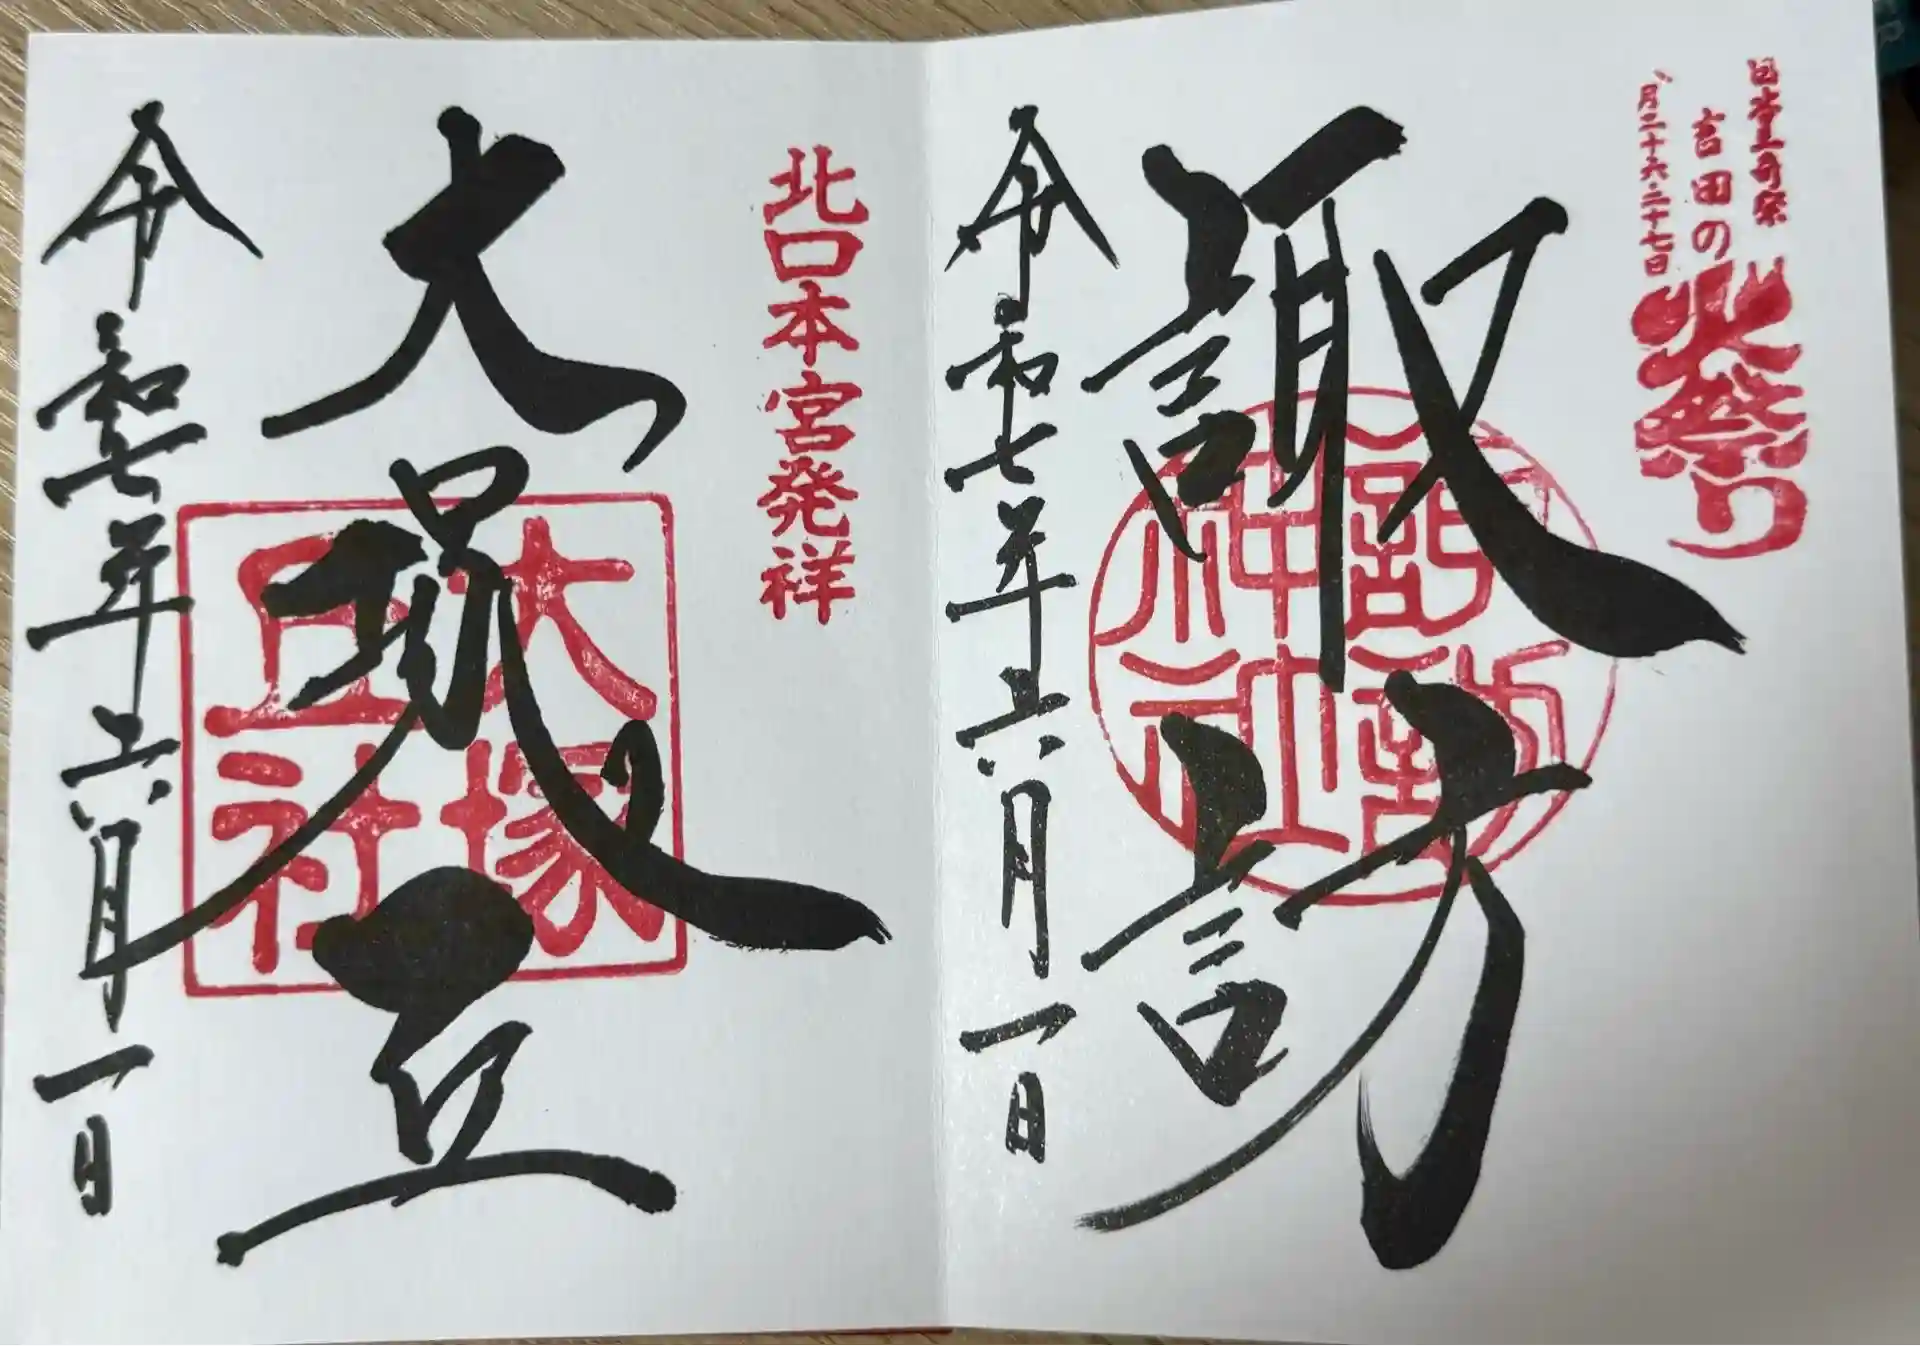 日本三奇祭
吉田の
火祭り
八月二十六、二十七日
諏訪
諏訪神社
令和七年六月一日
北口本宮発祥
大塚丘
大塚丘社
令和七年六月一日